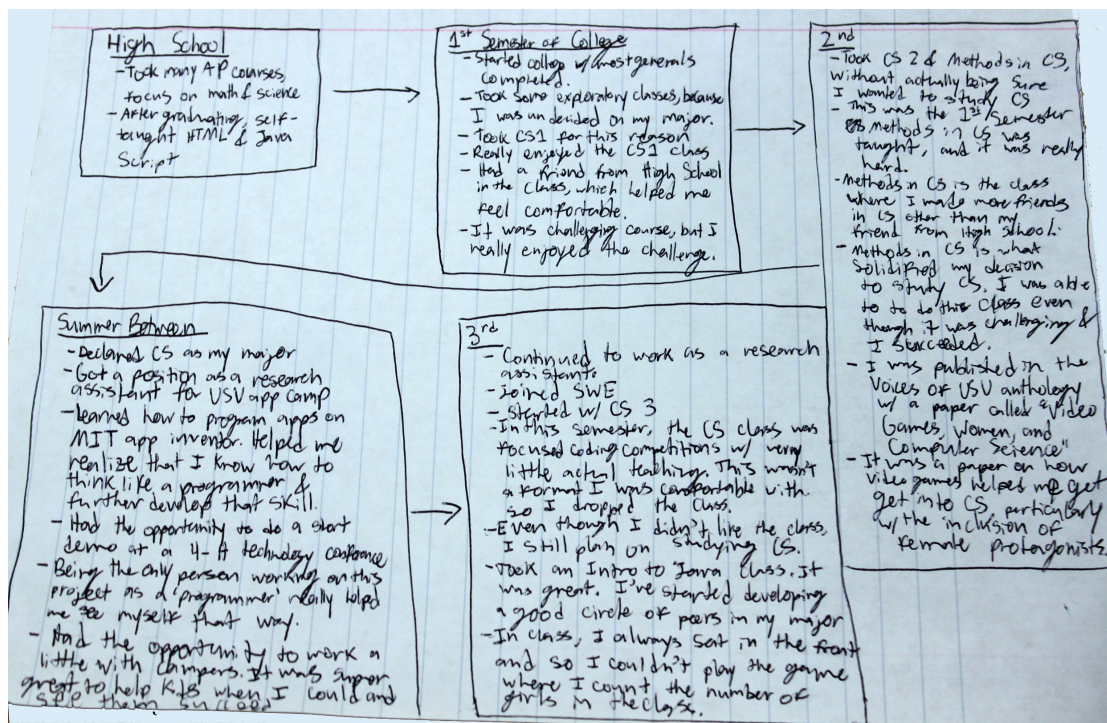 High School
- Took many AP courses,
focus on math & science
- After graduating, self-
taught HTML & Java
Script
1st Semester of College
- Started college w/ most generals
completed.
- Took some exploratory classes, because
I was undecided on my major.
- Took CS1 for this reason
- Really enjoyed the CS1 class
- Had a friend from High School
in the class, which helped me
feel comfortable.
- It was challenging course, but I
really enjoyed the challenge.
2nd
- Took CS 2 & Methods in CS,
without actually being sure
I wanted to study CS
- This was the 1st semester
Methods in CS was
taught, and it was really
hard.
- Methods in CS is the class
where I made more friends
in CS other than my
friend from High School.
- Methods in CS is what
solidified my decision
to study CS. I was able
to to do this class even
though it was challenging &
I succeeded.
- I was published in the
Voices of USU anthology
w/ a paper called "Video
Games, Women, and
Computer Science"
- It was a paper on how
video games helped me get
get into CS, particularly
w/ the inclusion of
female protagonists.
Summer Between
- Declared CS as my major
- Got a position as a research
assistant for USU app camp
- Learned how to program apps on
MIT app inventor. Helped me
realize that I know how to
think like a programmer &
further develop that skill.
- Had the opportunity to do a start
demo at a 4-H technology conference
- Being the only person working on this
project as a 'programmer' really helped
me see myself that way.
- Had the opportunity to work a
little with campers. It was super
great to help kids when I could and
see them succeed
3rd
- Continued to work as a research
assistant.
- Joined SWE
- Started w/ CS 3
- In this semester, the CS class was
focused coding competitions w/ very
little actual teaching. This wasn't
a format I was comfortable with
so I dropped the class.
- Even though I didn't like the class,
I still plan on studying CS.
- Took an Intro to Java class. It
was great. I've started developing
a good circle of peers in my major
- In class, I always sat in the front
and so I couldn't play the game
where I count the number of
girls in the class.